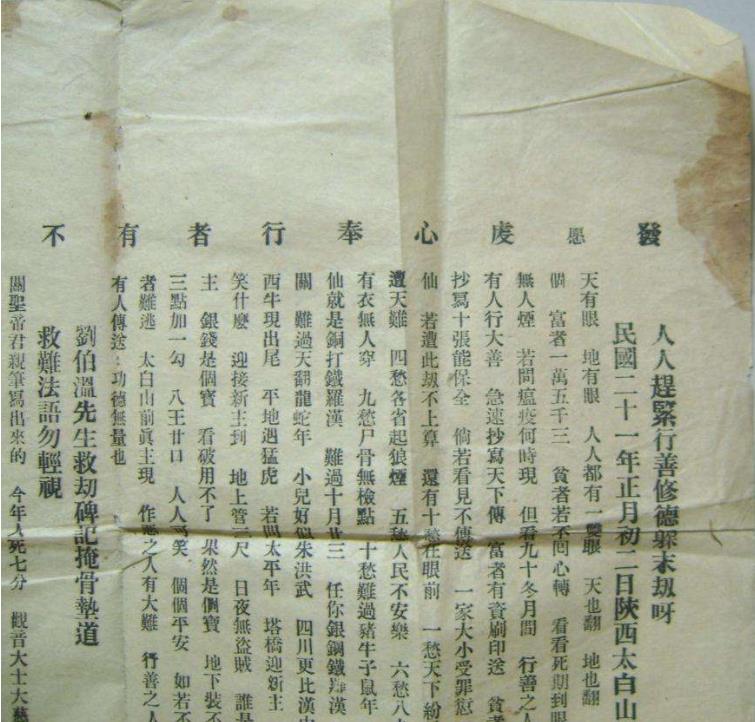 發愿虔心奉行者有不
人人趕緊行善修德躲末劫呀
民國二十一年正月初二日陝西太白山
天有眼 地有眼 人人都有一雙眼 天也翻 地也翻
個 富者一萬五千三 貧者若不回心轉 看看死期到眼
無人煙 若問瘟疫何時現 但看九十冬月間 行善之人
有人行大善 急速抄寫天下傳 富者有資刷印送 貧者
抄寫十張能保全 倘若看見不傳送 一家大小受罪愆
仙 若遭此刼不上算 還有十愁在眼前 一愁天下紛
遭天難 四愁各省起狼煙 五愁人民不安樂 六愁八
有衣無人穿 九愁尸骨無檢點 十愁難過豬牛子鼠年
仙就是銅打鐵羅漢 難過十月廿三 任你銀鋼鐵漢
關 難過天翻龍蛇年 小兒好似朱洪武 四川更比漢
西牛現出尾 平地遇猛虎 若問太平年 塔橋迎新主
笑什麼 迎接新主到 地上管三尺 日夜無盜賊 誰是
主 銀錢是個寶 看破用不了 果然是個寶 地下裝不
三點加一勾 八王廿口 人人喜笑 個個平安 如若不
者難逃 太白山前眞主現 作惡之人有大難 行善之人
有人傳送 功德無量也
劉伯溫先生救劫碑記掩骨墊道
救難法語勿輕視
關聖帝君親筆寫出來的 今年人死七分 觀音大士大慈